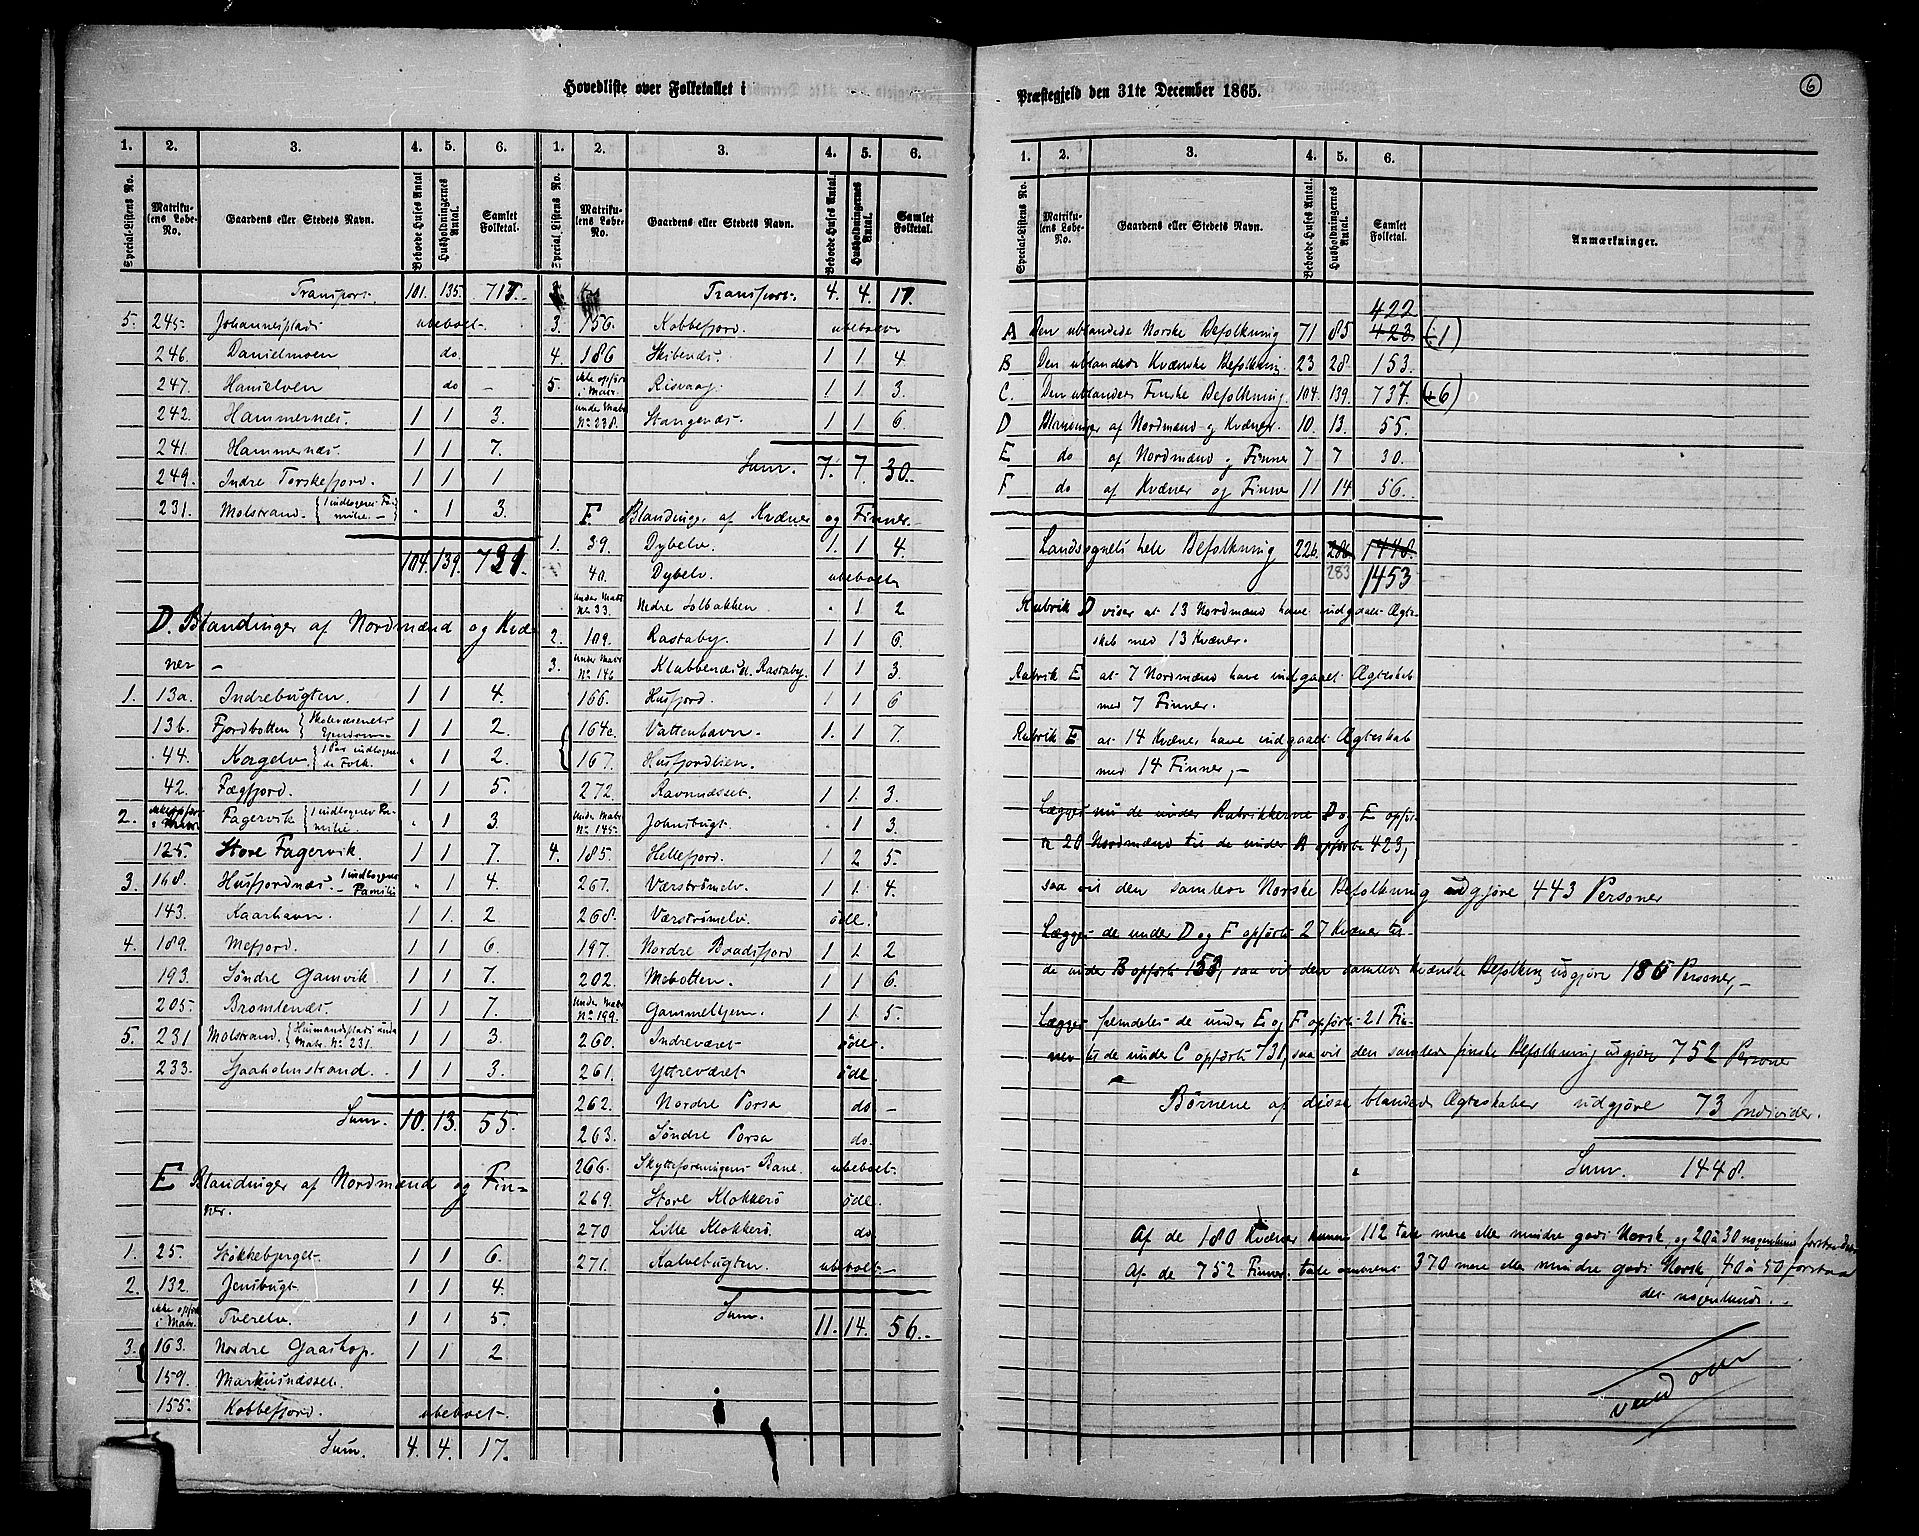 Hovedliste over Folketallet i
Præstegjeld den 31te December 1865.
6
1. 2. 3. 4. 5. 6.
Special-Listens No. Matrikulens Løbe-No. Gaardens eller Stedets Navn. Beboede Huses Antal Husholdningernes Antal. Samlet Folketal.
Transport. 101. 135. 717.
5. 245. Johannesplads ubeboet.
246. Danielmoen do.
247. Hanselven do -
242. Hammernæs. 1 1 3.
241. Hammernæs. 1 1 7.
249. Indre Torskefjord. 1 1 1
231. Molstrand. {1 indlogeret Familie.-} . 1 3.
104. 139. 731.
D. Blandinger af Nordmænd og Kvæ-
ner -
1. 13a. Indrebugten. 1 1 4.
13b. Fjordbotten {Skolevæsenets Ejendom 1 1 2.
44. Korgelv. {1 Par indlogerede Folk. . 1 2.
42. Fægfjord. 1 1 5.
2. ikke opfør i Matr. Fagervik {1 indlogeret Familie. . 1 3.
125. Store Fagervik. 1 1 7.
3. 168. Husfjordnæs. 1 indlogeret - Familie . 1 4.
143. Kaarhavn. 1 1. 2
4. 189. Mefjord. 1 1 6.
193. Søndre Gamvik 1 1 7.
205. Bromlenæs. 1 1 7.
5. 231 Molstrand. {Husmandsplads under Matr. No 231. 1 1 3.
233. Sjaaholmstrand. 1 1 3.
Sum. 10. 13. 55.
E Blandinger af Nordmænd og Fin-
ner.
1. 25. Støkkebjerget. 1 1 6.
2. 132. Jensbugt. 1 1 4.
ikke opført i Matr. Tverelv. 1 1 5.
3. 163. Nordre Gaashop. 1 1 2
159. Markusnæsset.
155. Kobbefjord. ubeboet.
Sum. 4. 4. 17.
1. 2. 3. 4. 5. 6.
Special Listens No. Matrikulens Løbe-No. Gaardens eller Stedets Navn. Beboede Huses Antal. Husholdningernes Antal. Samlet Folketal.
Transport. 4. 4. 17.
3. 156. Kobbefjord. ubeboet
4. 186 Skibenæs. 1 1. 4
5. ikke opført i Matr. Risvaag. 1 1 3.
under Matr. No 238. Stangenæs. 1 1 6
Sum. 7. 7. 30.
F. Blandinger af Kvæner og Finner.
1. 39. Dybelv. 1. 1 4.
40. Dybelv. ubeboet
under Matr. No 33. Nedre Solbakken. . 1 2
2. 109. Rastaby. 1 1 6.
3. under Matr. No 146 Klubbenæs v. Rastaby. 1 1 3.
166. Husfjord. 1 1 6
164c. Vattenhavn. 1. 1 7.
167. Husfjordlien.
272. Ravnnæsset. 1 1. 3.
under Matr. No 145. Johnsbugt. . 1 3.
4. 185. Hellefjord. 1 2 5.
267. Værstrømelv. 1 1. 4.
268. Værstrømelv. øde.
197. Nordre Baadsfjord 1 1. 2
202. Mebotten. 1 1 6.
under Matr. No 199. Gammelhjem. 1 1. 5.
260. Indreværet øde.
261. Yttreværet øde.
262. Nordre Porsa do -
263. Søndre Porsa do.
266. Skytteforeningens Bane. ubeboet.
269. Store Klokkerø øde.
270 Lille Klokkerø. do
271. Kalvebugten. ubeboet.
Sum. 11. 14. 56.
1. 2. 3. 4. 5. 6.
Special-Listens No. Matrikulens Løbe-No. Gaardens eller Stedets Navn. Beboede Huses Antal. Husholdningernes Antal. Samlet Folketal. Anmærkninger.
422
A Den ublandede Norske Befolkning 71 85 423 (-1)
B Den ublandede Kvænske Befolkning 23 28 153.
C. Den ublandede Finske Befolkning. 104. 139. 737. (+6)
D Blandinger af Nordmænd og Kvæner. 10. 13. 55.
E do af Nordmænd og Finner 7 7 30.
F do af Kvæner og Finner 11 14 56.
Landsognets hele Befolkning 226. 286 1448.
283 1453
Rubrik D viser at 13 Nordmænd have indgaaet Ægte-
skab med 13 Kvæner.
Rubrik E at 7 Nordmænd have indgaaet Ægteskab
med 7 Finner.
Rubrik F at 14 Kvæner have indgaaet Ægteskab
med 14 Finner,-
Lægges nu de under Rubrikkerne D og E opfør-
te 20 Nordmænd til de under A opførte 423,
saa vil den samlede Norske Befolkning udgjøre 443 Personer
Lægges de under D og F opførte 27 Kvæner til
de under B opførte 153, saa vil den samlede kvænske Befolkn. udgjøre 180 Personer,-
Lægges fremdeles de under E og F opførte 21 Fin-
ner til de under C opførte 731, saa vil den samlede finske Befolkning udgjøre 752 Personer
Børnene af disse blandede Ægteskaber udgjøre 73 Individer.
Sum. 1448.
Af de 180 Kvæner kunne 112 tale mere eller mindre godt Norsk, og 20 à 30 nogenlunde forstaa det
Af de 752 Finner tale omtrent 370 mere eller mindre godt Norsk, 40 à 50 forstaa
det nogenlunde.
vend om